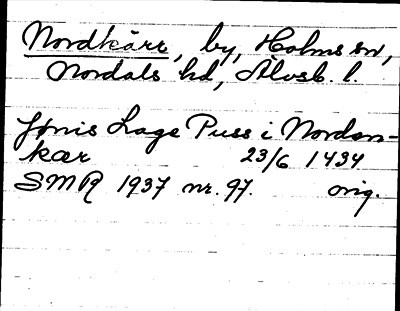 Nordkärr, by, Holms sn,
Nordals hd, Älvsb. l.
Jønis Lage Puss i Nordan-
kær 23/6 1434
SMR 1937 nr. 97. orig.